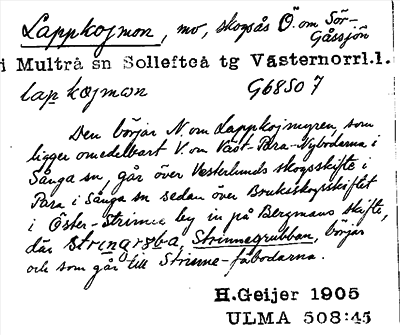 Lappkojmon, mo, skogsås Ö. om Sör-
Gåssjön
i Multrå sn Sollefteå tg Västernorrl.l.
lap kojmon G6850 7
Den börjar N. om Lappkojmyren, som
ligger omedelbart V. om Väst-Para-Nybodarna i
Sånga sn, går över Västerlunds skogsskifte i
Para i Sånga sn sedan över Brukiskogsskiftet
i Öster-Strinne by in på Bergmans skifte,
där Strinnegrubban, börjar
och som går till Strinne-fäbodarna.
H.Geijer 1905
ULMA 508:45